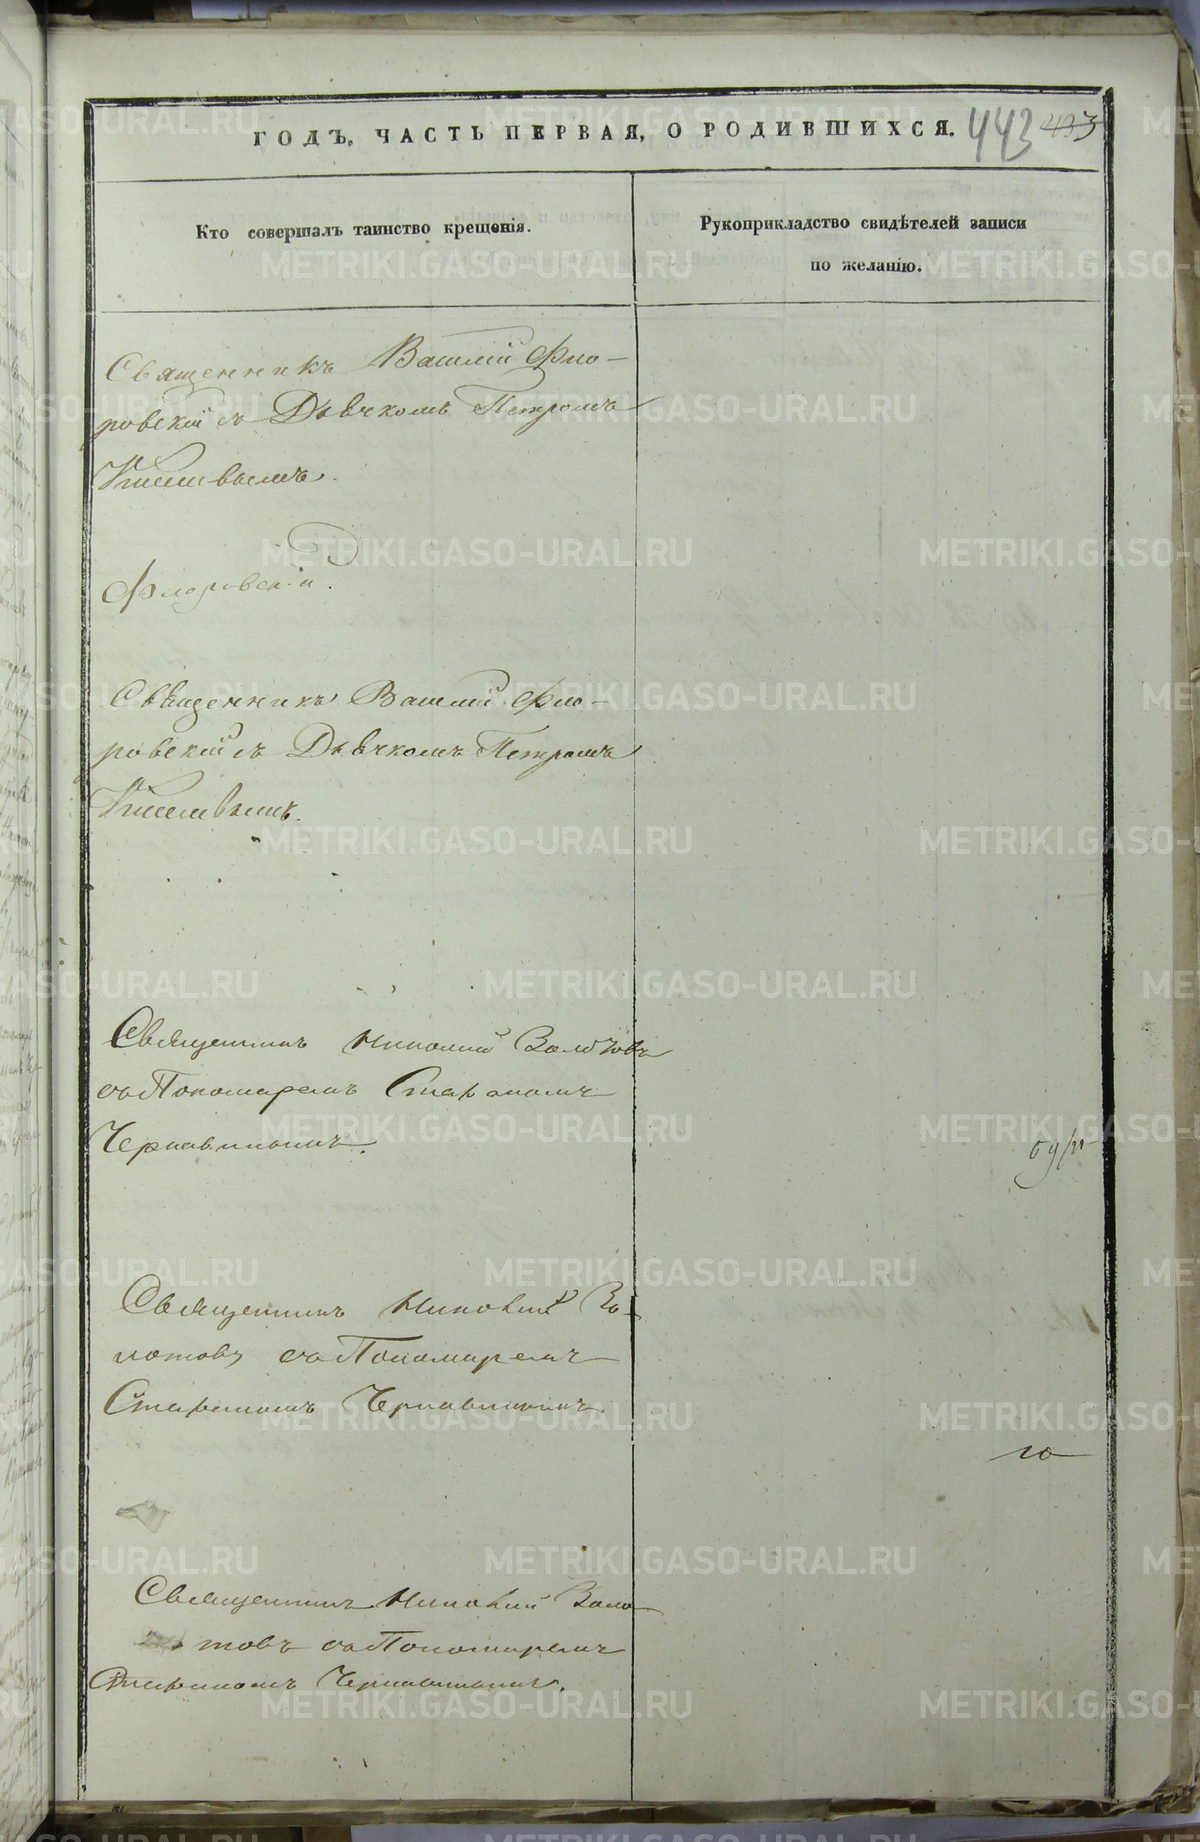 ГОДЪ, ЧАСТЬ ПЕРВАЯ, О РОДИВШИХСЯ. 443
Кто совершалъ таинство крещенія.
Рукоприкладство свидѣтелей записи
по желанію.
Священникъ Василій Фло-
ровскій съ Дьячкомъ Петромъ
Флоровскій.
Священникъ Василій Фло-
ровскій съ Дьячкомъ Петромъ
Священникъ Николай Золотовъ
съ Пономаремъ
Чернавинымъ.
Священникъ Николай Зо-
лотовъ съ Пономаремъ
Чернавинымъ
Священникъ Николай Золо-
товъ съ Пономаремъ
Чернавинымъ.
METRIKI.GASO-URAL.RU